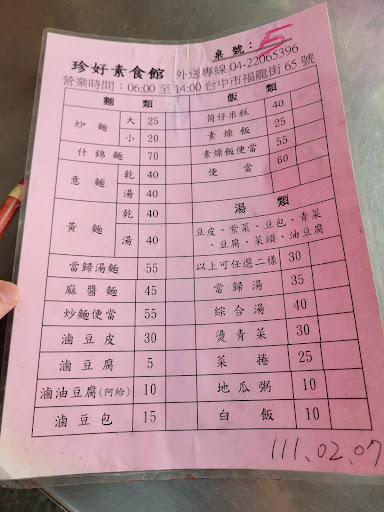 桌號：5
珍好素食館 外送專線 04-22065396
營業時間：06:00 至 14:00 台中市福龍街 65 號
麵類
炒麵 大 25
小 20
什錦麵 70
意麵 乾 40
湯 40
黃麵 乾 40
湯 40
當歸湯麵 55
麻醬麵 45
炒麵便當 55
滷豆皮 30
滷豆腐 5
滷油豆腐(阿給) 10
滷豆包 15
飯類
筒仔米糕 40
素燥飯 25
素燥飯便當 55
便當 60
湯類
豆皮、紫菜、豆包、青菜
、豆腐、菜頭、油豆腐
以上可任選二樣 30
當歸湯 35
綜合湯 40
燙青菜 30
菜捲 25
地瓜粥 10
白飯 10
111.02.07